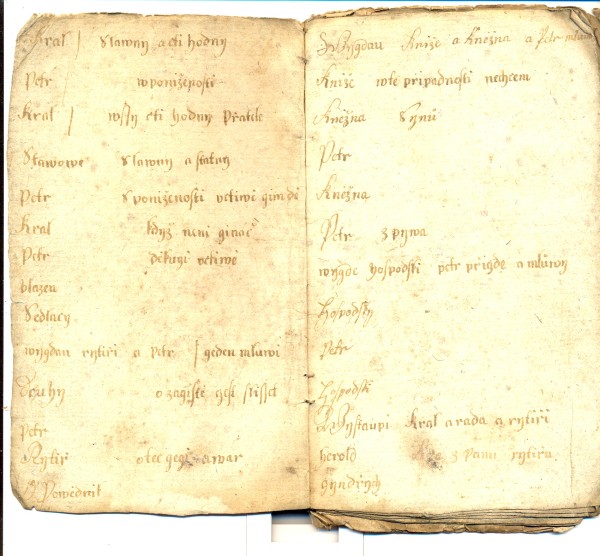 Kral / Slawny a cti hodny
Petr w poniženosti
Kral / wssy cti hodny Pratele
Stawowe Slawny a statny
Petr S poniženosti uctiwe
Kral když neni ginač
Petr děkugi uctiwě
blazen
Sedlacy
wygdau rytiři a Petr / geden mluwi
Druhy o zagiste gest slisset
petr
Rytiř otec gegi a war
Powědnik
Wygdau Kniže a Kněžna a Petr mluwi
Kniže w te připadnosti nechcem
Kněžna Synu
Petr
Kněžna
Petr zpiwa
wygde hospodski petr prigde a mluwy
Hospodsky
Petr
Hospodski
Wystaupi Kral a rada a rytiři
herold z panu rytiru
gyndrzych